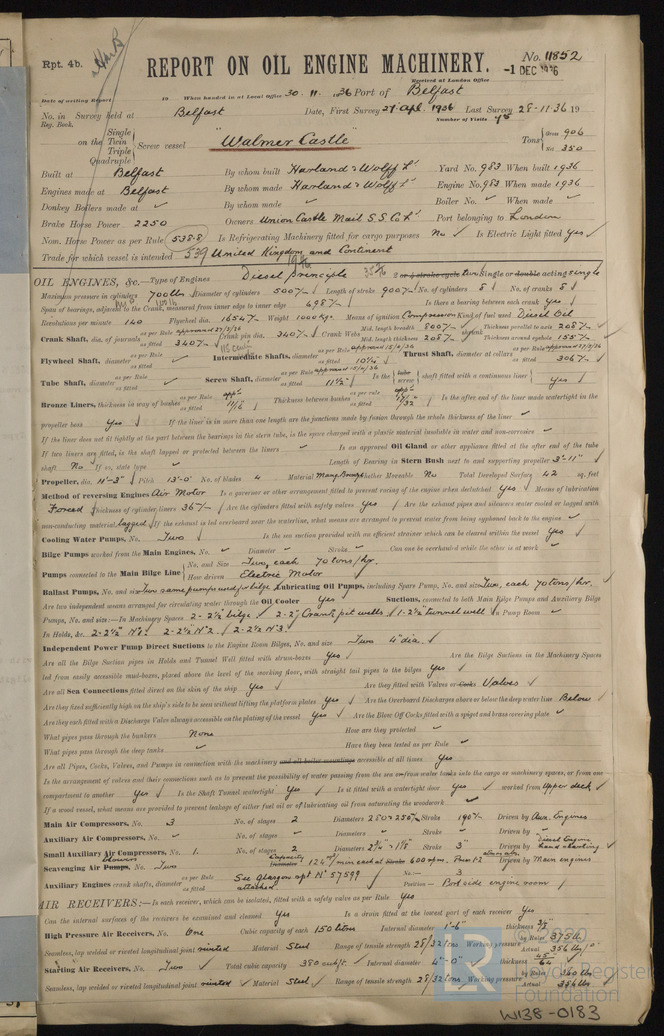 Rpt. 4b.
REPORT ON OIL ENGINE MACHINERY.
No. 11852
Received at London Office
-1 DEC 1936
Date of writing Report 19 When handed in at Local Office 30 . 11 . 1936 Port of Belfast
No. in Reg. Book. Survey held at Belfast Date, First Survey 27 Apl. 1936 Last Survey 28-11-36 19
Number of Visits 45
on the Single Twin Triple Quadruple Screw vessel "Walmer Castle" Tons Gross 906 Net 350
Built at Belfast By whom built Harland & Wolff Ld Yard No. 983 When built 1936
Engines made at Belfast By whom made Harland & Wolff Ld Engine No. 983 When made 1936
Donkey Boilers made at ✓ By whom made ✓ Boiler No. ✓ When made ✓
Brake Horse Power 2250 Owners Union Castle Mail S S Co Ld Port belonging to London
Nom. Horse Power as per Rule 538.8 539 Is Refrigerating Machinery fitted for cargo purposes No ✓ Is Electric Light fitted Yes ✓
Trade for which vessel is intended United Kingdom and Continent
OIL ENGINES, &c.—Type of Engines Diesel principle 2 or 4 stroke cycle two Single or double acting single
Maximum pressure in cylinders 700 lbs Diameter of cylinders 500 m/m ✓ Length of stroke 900 m/m ✓ No. of cylinders 8 No. of cranks 8
Span of bearings, adjacent to the Crank, measured from inner edge to inner edge 698 m/m Is there a bearing between each crank Yes
Revolutions per minute 140 Flywheel dia. 1654 m/m Weight 1000 Kgs. Means of ignition Compression Kind of fuel used Diesel Oil
Crank Shaft, dia. of journals as per Rule approved 27/3/36 as fitted 340 m/m Crank pin dia. 340 m/m Crank Webs Mid. length breadth 800 m/m Mid. length thickness 208 m/m Thickness parallel to axis 208 m/m Thickness around eyehole 155 m/m
Flywheel Shaft, diameter as per Rule ✓ as fitted Intermediate Shafts, diameter as per Rule approved 15/4/36 as fitted 10 1/4" Thrust Shaft, diameter at collars as per Rule approved 27/3/36 as fitted 306 m/m
Tube Shaft, diameter as per Rule ✓ as fitted Screw Shaft, diameter as per Rule approved 15/4/36 as fitted 11 1/2" Is the tube screw shaft fitted with a continuous liner Yes ✓
Bronze Liners, thickness in way of bushes as per Rule appd as fitted 11/16 Thickness between bushes as per rule appd as fitted Is the after end of the liner made watertight in the
propeller boss Yes ✓ If the liner is in more than one length are the junctions made by fusion through the whole thickness of the liner ✓
If the liner does not fit tightly at the part between the bearings in the stern tube, is the space charged with a plastic material insoluble in water and non-corrosive ✓
If two liners are fitted, is the shaft lapped or protected between the liners ✓ Is an approved Oil Gland or other appliance fitted at the after end of the tube
shaft No If so, state type ✓ Length of Bearing in Stern Bush next to and supporting propeller 3'-11"
Propeller, dia. 11'-3" Pitch 13'-0" No. of blades 4 Material Mang. Bronze whether Moveable No Total Developed Surface 42 sq. feet
Method of reversing Engines Air Motor Is a governor or other arrangement fitted to prevent racing of the engine when declutched Yes ✓ Means of lubrication
Forced Thickness of cylinder liners 36 m/m ✓ Are the cylinders fitted with safety valves Yes Are the exhaust pipes and silencers water cooled or lagged with
non-conducting material lagged If the exhaust is led overboard near the waterline, what means are arranged to prevent water from being syphoned back to the engine ✓
Cooling Water Pumps, No. Two Is the sea suction provided with an efficient strainer which can be cleared within the vessel Yes ✓
Bilge Pumps worked from the Main Engines, No. ✓ Diameter ✓ Stroke ✓ Can one be overhauled while the other is at work ✓
Pumps connected to the Main Bilge Line No. and Size Two, each 70 tons/hr. How driven Electric Motor
Ballast Pumps, No. and size Two same pumps used for bilge Lubricating Oil Pumps, including Spare Pump, No. and size Two, each 70 tons/hr.
Are two independent means arranged for circulating water through the Oil Cooler Yes Suctions, connected to both Main Bilge Pumps and Auxiliary Bilge
Pumps, No. and size:—In Machinery Spaces 2-2 1/2" bilge 2-2" Crank pit wells 1-2 1/2" tunnel well In Pump Room ✓
In Holds, &c. 2-2 1/2" No. 1 2-2 1/2" No. 2 2-2 1/2" No. 3
Independent Power Pump Direct Suctions to the Engine Room Bilges, No. and size Two 4" dia.
Are all the Bilge Suction pipes in Holds and Tunnel Well fitted with strum-boxes Yes Are the Bilge Suctions in the Machinery Spaces
led from easily accessible mud-boxes, placed above the level of the working floor, with straight tail pipes to the bilges Yes
Are all Sea Connections fitted direct on the skin of the ship Yes Are they fitted with Valves or Cocks Valves
Are they fixed sufficiently high on the ship's side to be seen without lifting the platform plates Yes Are the Overboard Discharges above or below the deep water line Below
Are they each fitted with a Discharge Valve always accessible on the plating of the vessel Yes Are the Blow Off Cocks fitted with a spigot and brass covering plate ✓
What pipes pass through the bunkers None How are they protected ✓
What pipes pass through the deep tanks ✓ Have they been tested as per Rule ✓
Are all Pipes, Cocks, Valves, and Pumps in connection with the machinery and all boiler mountings accessible at all times Yes
Is the arrangement of valves and their connections such as to prevent the possibility of water passing from the sea or from water tanks into the cargo or machinery spaces, or from one
compartment to another Yes Is the Shaft Tunnel watertight Yes Is it fitted with a watertight door Yes worked from Upper deck
If a wood vessel, what means are provided to prevent leakage of either fuel oil or of lubricating oil from saturating the woodwork ✓
Main Air Compressors, No. 3 No. of stages 2 Diameters Stroke 190 m/m Driven by Aux. Engines
Auxiliary Air Compressors, No. ✓ No. of stages ✓ Diameters ✓ Stroke ✓ Driven by ✓
Small Auxiliary Air Compressors, No. 1. No. of stages 2 Diameters Stroke 3" Driven by Diesel Engine hand starting
Scavenging Air Pumps, blowers No. Two Diameter Capacity Stroke 600 rpm. Driven by Main engines
Auxiliary Engines crank shafts, diameter as per Rule as fitted See Glasgow rpt No 57599 attached. No. 3 Position Port side engine room
AIR RECEIVERS:—Is each receiver, which can be isolated, fitted with a safety valve as per Rule Yes
Can the internal surfaces of the receivers be examined and cleaned Yes Is a drain fitted at the lowest part of each receiver Yes
High Pressure Air Receivers, No. One Cubic capacity of each 150 litres Internal diameter 1'-6" thickness
Seamless, lap welded or riveted longitudinal joint riveted Material Steel Range of tensile strength 28/32 tons Working pressure by Rules 375 lb Actual 356 lbs/□"
Starting Air Receivers, No. Two Total cubic capacity 380 cub ft. Internal diameter 4'-0" thickness 45/64
Seamless, lap welded or riveted longitudinal joint riveted Material Steel Range of tensile strength 28/32 tons Working pressure by Rules 360 lbs Actual 356 lbs
© 2020
Lloyd's Register
Foundation
W138-0183